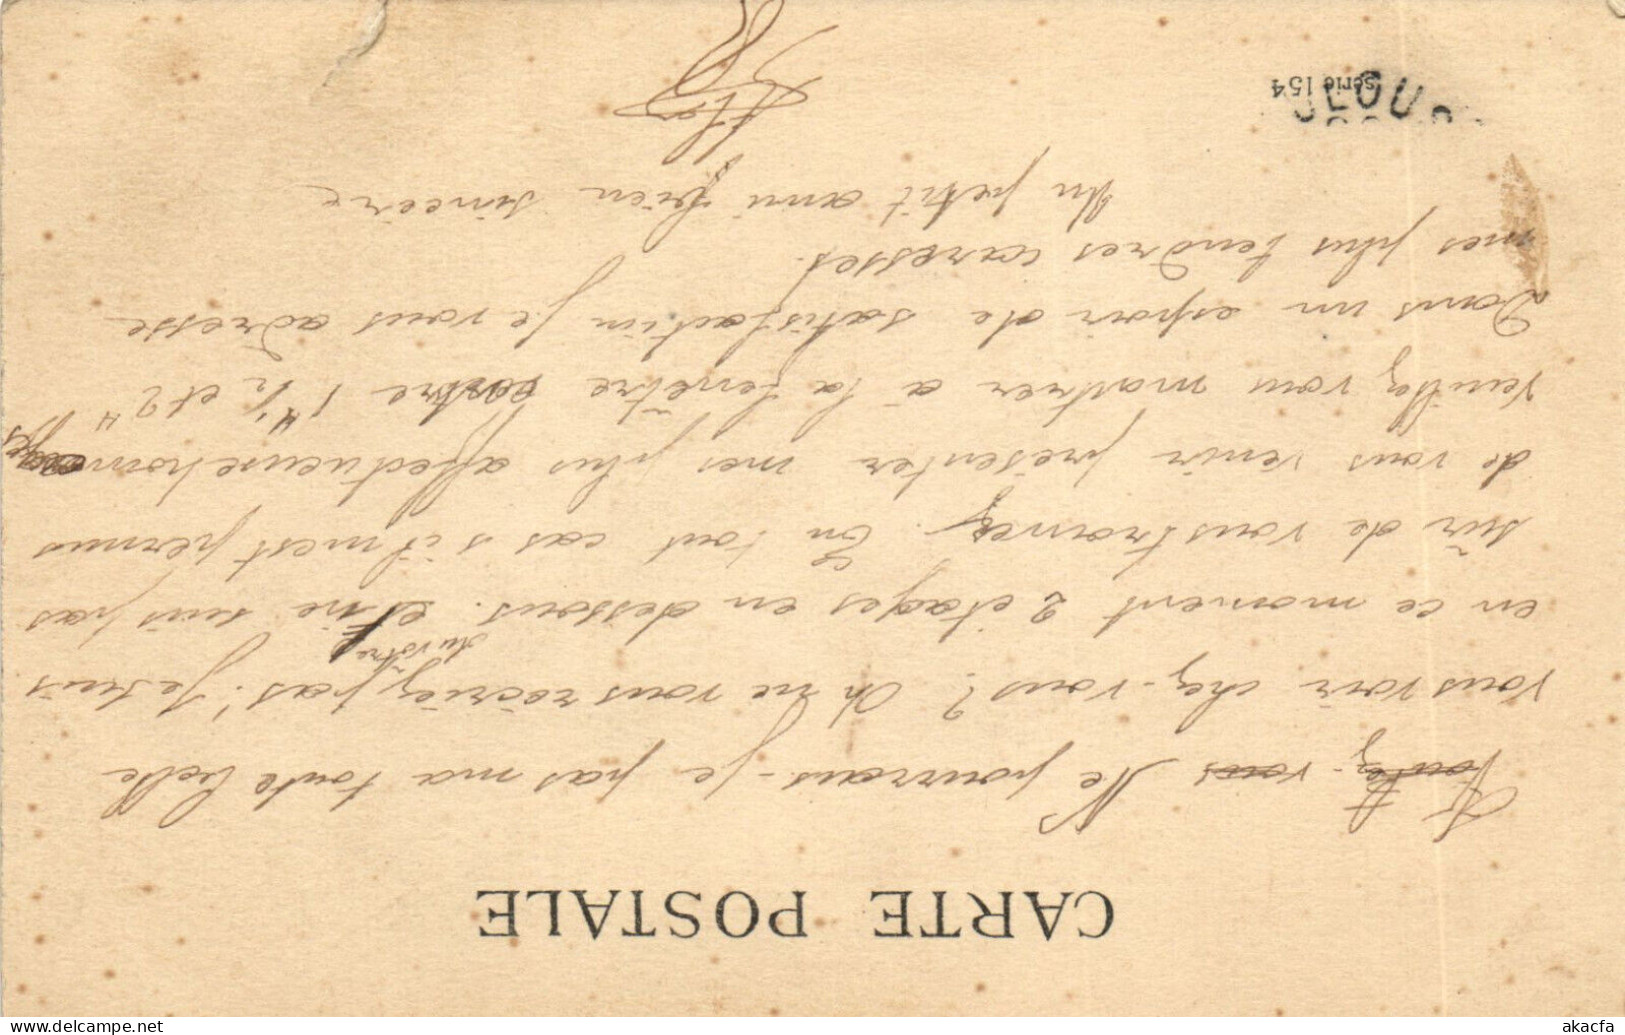 CARTE POSTALE
Voulez-vous Ne pourrais-je pas ma toute belle
vous voir chez-vous? Oh ne vous récriez pas! Je suis
en ce moment 2 étages en dessous du vôtre. et ne suis pas
sûr de vous trouver. En tout cas s'il m'est permis
de vous venir présenter mes plus affectueuse hommages
veuillez vous montrer à la fenêtre entre 1 1/2 et 2 H
Dans un espoir de satisfaction je vous adresse
mes plus tendres caresses.
Un petit ami bien sincère
Série 154
www.delcampe.net
akacfa